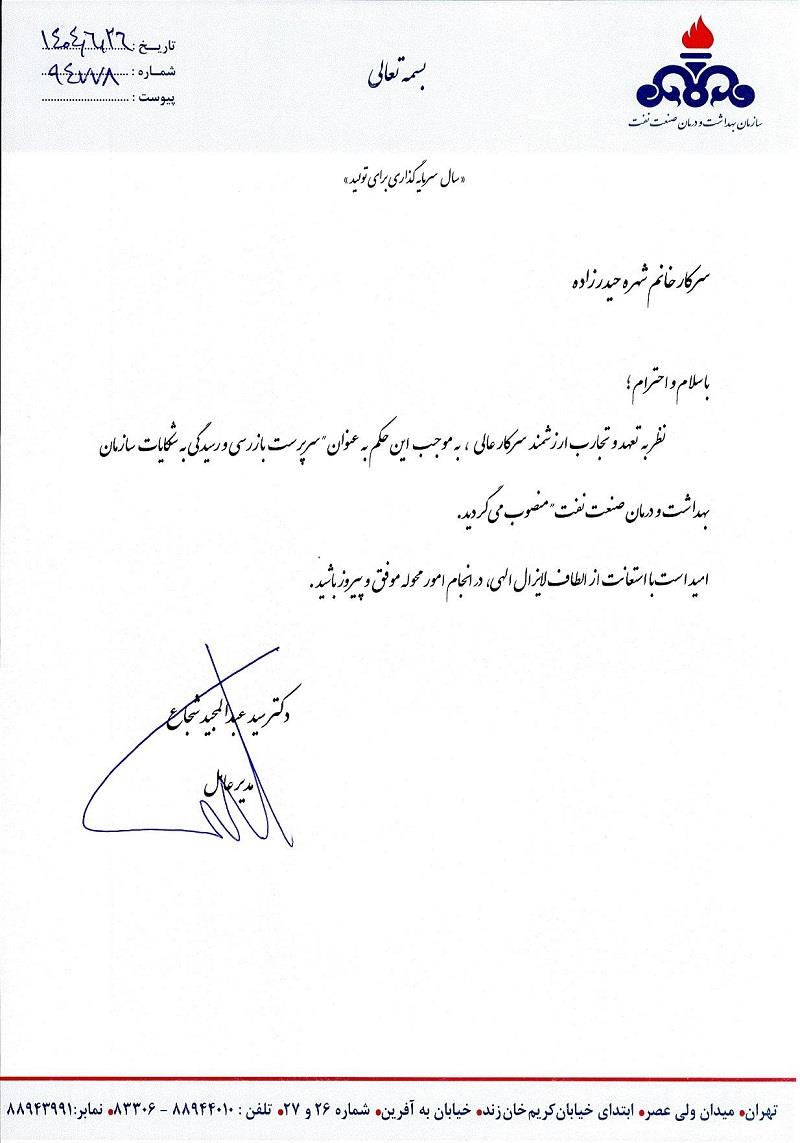 بسمه تعالی
تاریخ : ۱۴۰۴/۶/۲۶
شماره :
پیوست :
سازمان بهداشت و درمان صنعت نفت
«سال سرمایه گذاری برای تولید»
سرکار خانم شهره حیدرزاده
باسلام و احترام ؛
نظر به تعهد و تجارب ارزشمند سرکار عالی ، به موجب این حکم به عنوان "سرپرست بازرسی و رسیدگی به شکایات سازمان
بهداشت و درمان صنعت نفت" منصوب می گردید.
امید است با استعانت از الطاف لایزال الهی، در انجام امور محوله موفق و پیروز باشید .
دکتر سید عبدالمجید شجاع
مدیرعامل
تهران • میدان ولی عصر • ابتدای خیابان کریم خان زند • خیابان به آفرین • شماره ۲۶ و ۲۷ • تلفن : ۸۸۹۴۴۰۱۰ - ۸۳۳۰۶ • نمابر: ۸۸۹۴۳۹۹۱